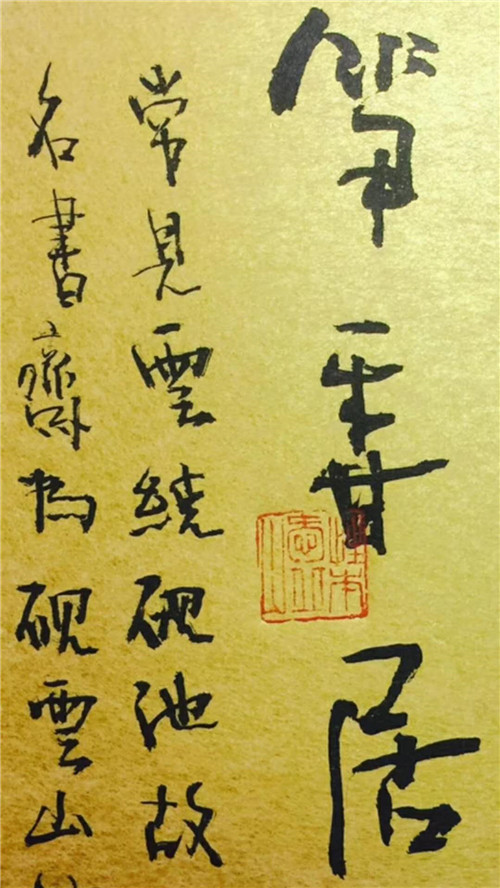 香居
常見雲繞硯池故
名書齋為硯雲山